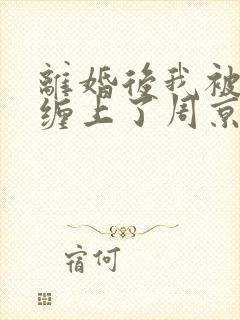 離婚後我被
缠上了周京
宿何